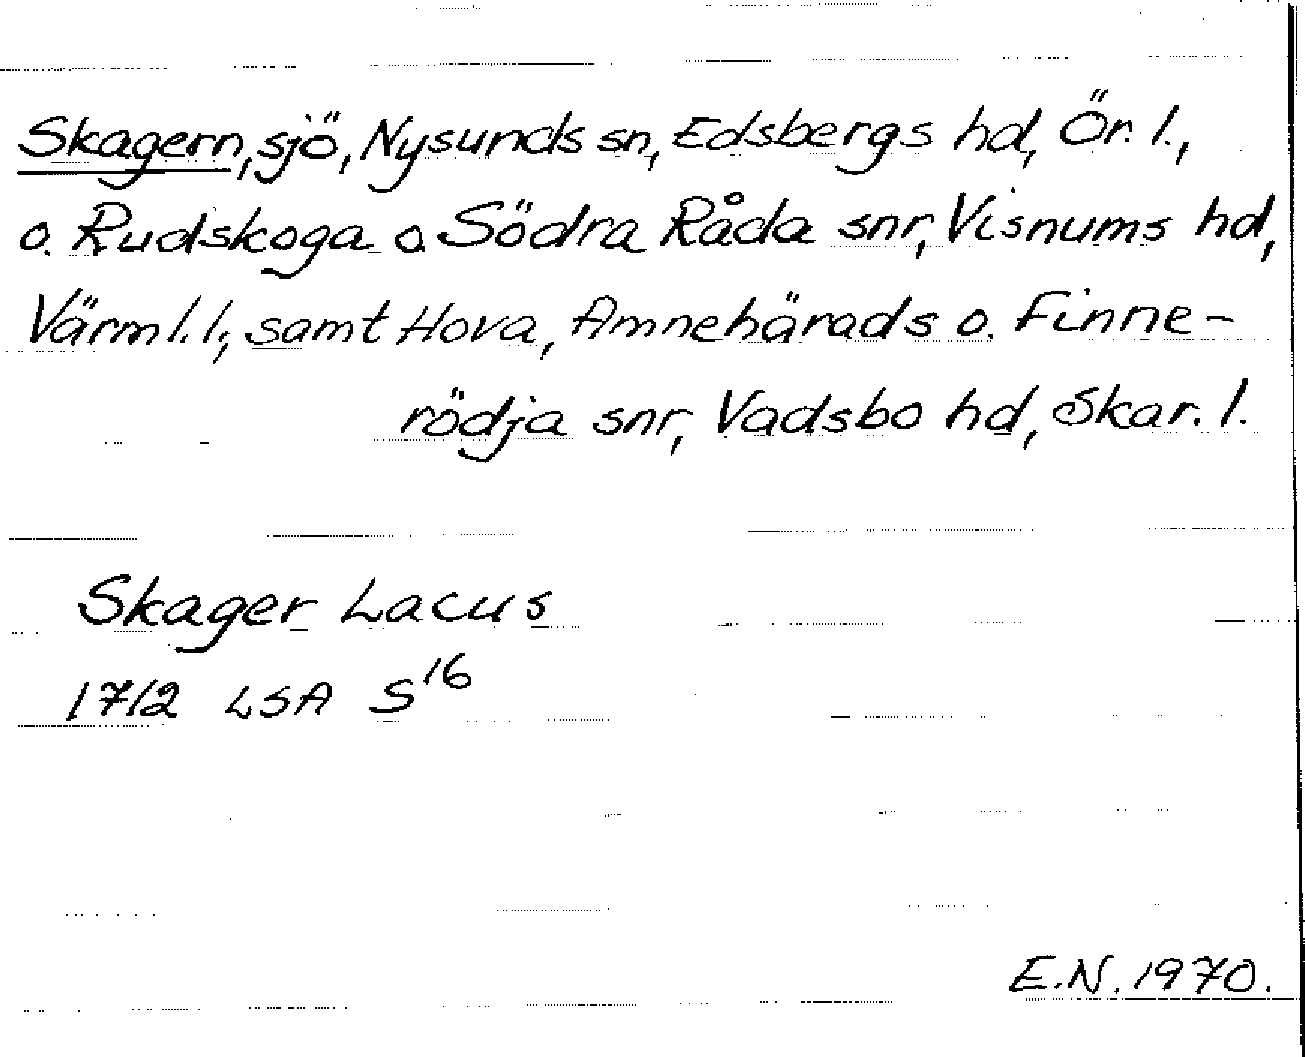 Skagern, sjö, Nysunds sn, Edsbergs hd, Ör. l.,
o. Rudskoga o. Södra Råda snr, Visnums hd,
Värml. l., samt Hova, Amnehärads o. Finne-
rödja snr, Vadsbo hd, Skar. l.
Skager Lacus
1712 LSA S16
E.N. 1970.